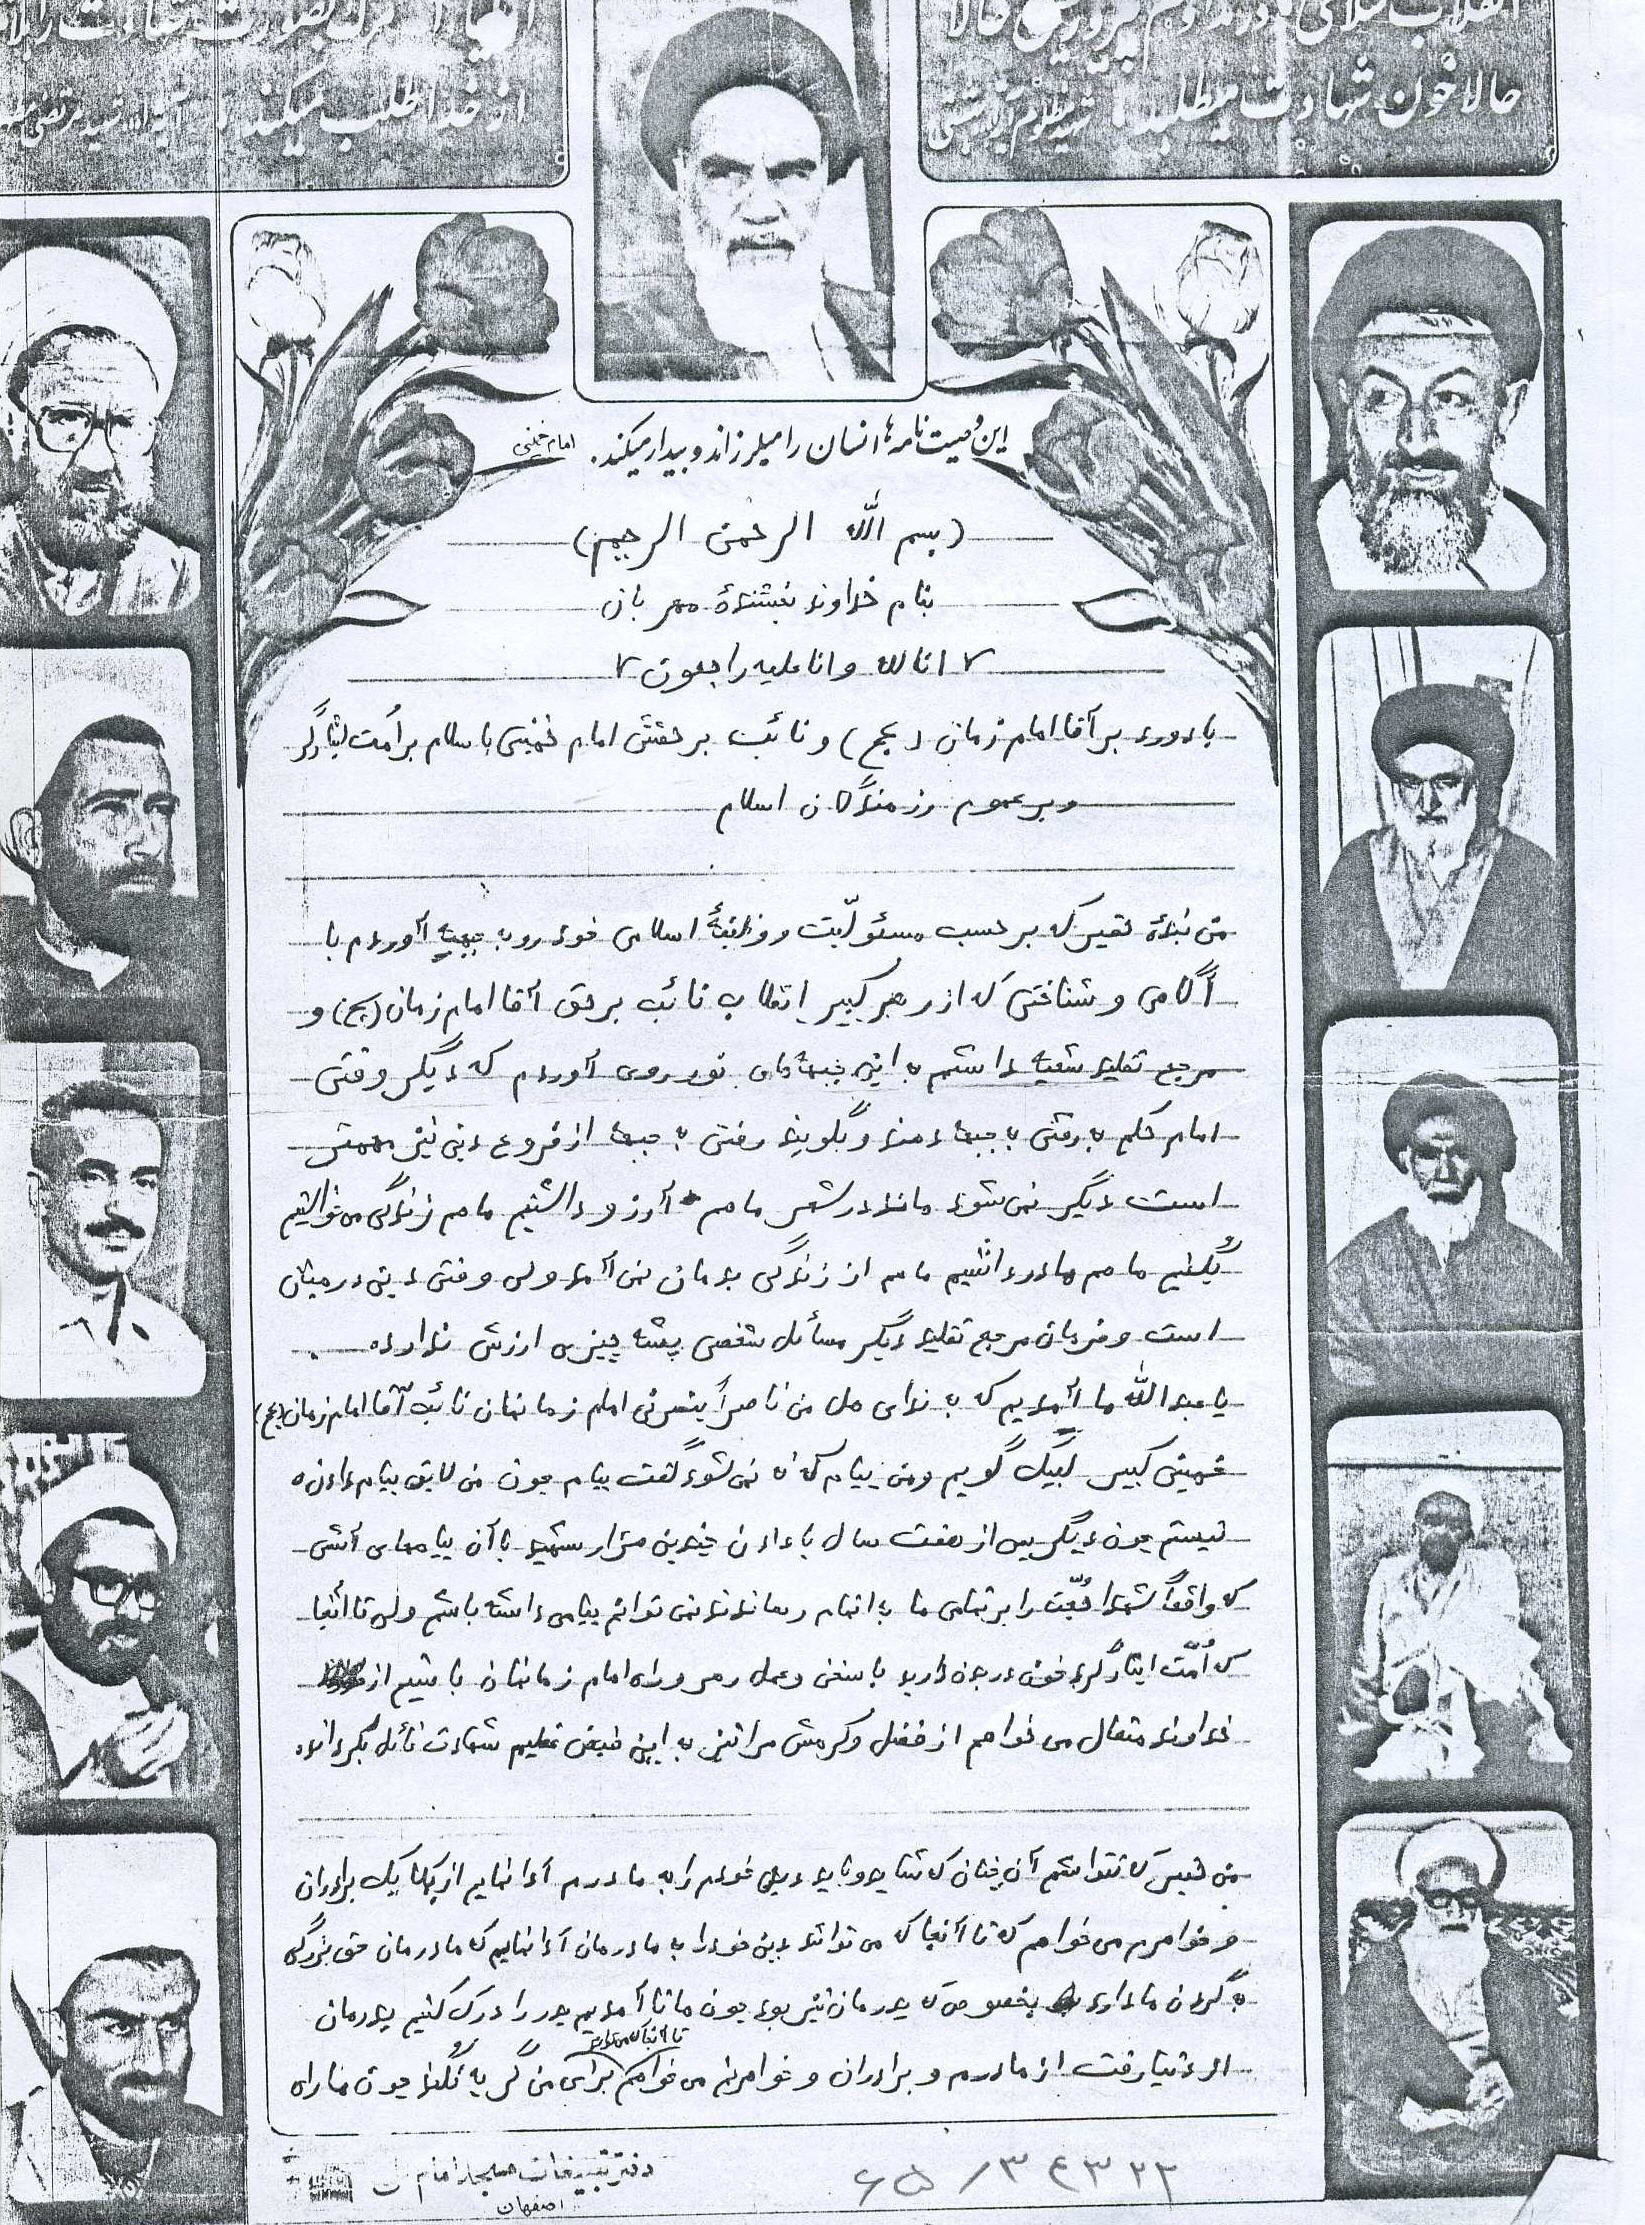 انقلاب اسلامی
حالا خون شهادت میطلبد. شهید مظلوم
از خدا طلب میکنند.
این وصیت نامه‌ها انسان را میلرزاند و بیدار میکند. امام خمینی
(بسم الله الرحمن الرحیم)
بنام خداوند بخشندهٔ مهربان
انا لله و انا علیه راجعون
با درود بر آقا امام زمان (عج) و نائب بر حقش امام خمینی با سلام بر اُمت ایثارگر
و بر عموم رزمندگان اسلام
من بندهٔ حقیر که بر حسب مسئولیّت و وظیفهٔ اسلامی خود رو به جبهه آوردم با
آگاهی و شناختی که از رهبر کبیر انقلاب نائب بر حق آقا امام زمان (عج) و
مرجع تقلید شیعه داشتم به این جبهه‌های نور روی آوردم که دیگر وقتی
امام حکم به رفتن به جبهه دهند و بگویند رفتن به جبهه از فروع دین نیز مهمتر
است دیگر نمی شود ماند در شهر ما هم آرزو داشتیم ما هم زندگی می خواستیم
بُکنیم ما هم مادر داشتیم ما هم از زندگی بدمان نمی آمد ولی وقتی دین در میان
است و فرمان مرجع تقلید دیگر مسائل شخصی پشه چیزی ارزش ندارد .
یا عبدالله ما آمدیم که به ندای هل من ناصراً ینصرنی امام زمانمان نائب آقا امام زمان (عج)
خمینی کبیر لبیک گویم و من پیام که نه نمی شود گفت پیام چون من لایق پیام دادن
نیستم چون دیگر پس از هفت سال با دادن چندین هزار شهید با آن پیامهای آتشی
که واقعاً شهدا حُجّت را بر تمامی ما به اتمام رساندند نمی توانم پیامی داشته باشم ولی تا آنجا
که اُمّت ایثارگر خون در جان دارید با سخن و عمل رهرو راه امام زمانمان باشیم از
خداوند متعال می خواهم از فضل و کرمش مرا نیز به این فیض عظیم شهادت نائل بگرداند
من حقیر که نتوانستم آن چنان که شاید و باید دین خودم را به مادرم اَدا نمایم از یکایک برادران
و خواهرم می خواهم که تا آنجا که می توانند دین خود را به مادرمان اَدا نمایم که مادرمان حق بزرگی
به گردن ما دارد بخصوص که پدرمان نیز بود چون ما تا آمدیم پدر را درک کنیم پدرمان
تا آنجا که می توانند
از دنیا رفت از مادرم و برادران و خواهرم می خواهم برای من گریه نکنند چون ما راه
دفتر تبلیغات مسجد امام
اصفهان
۶۵/۳۴۳۲۳